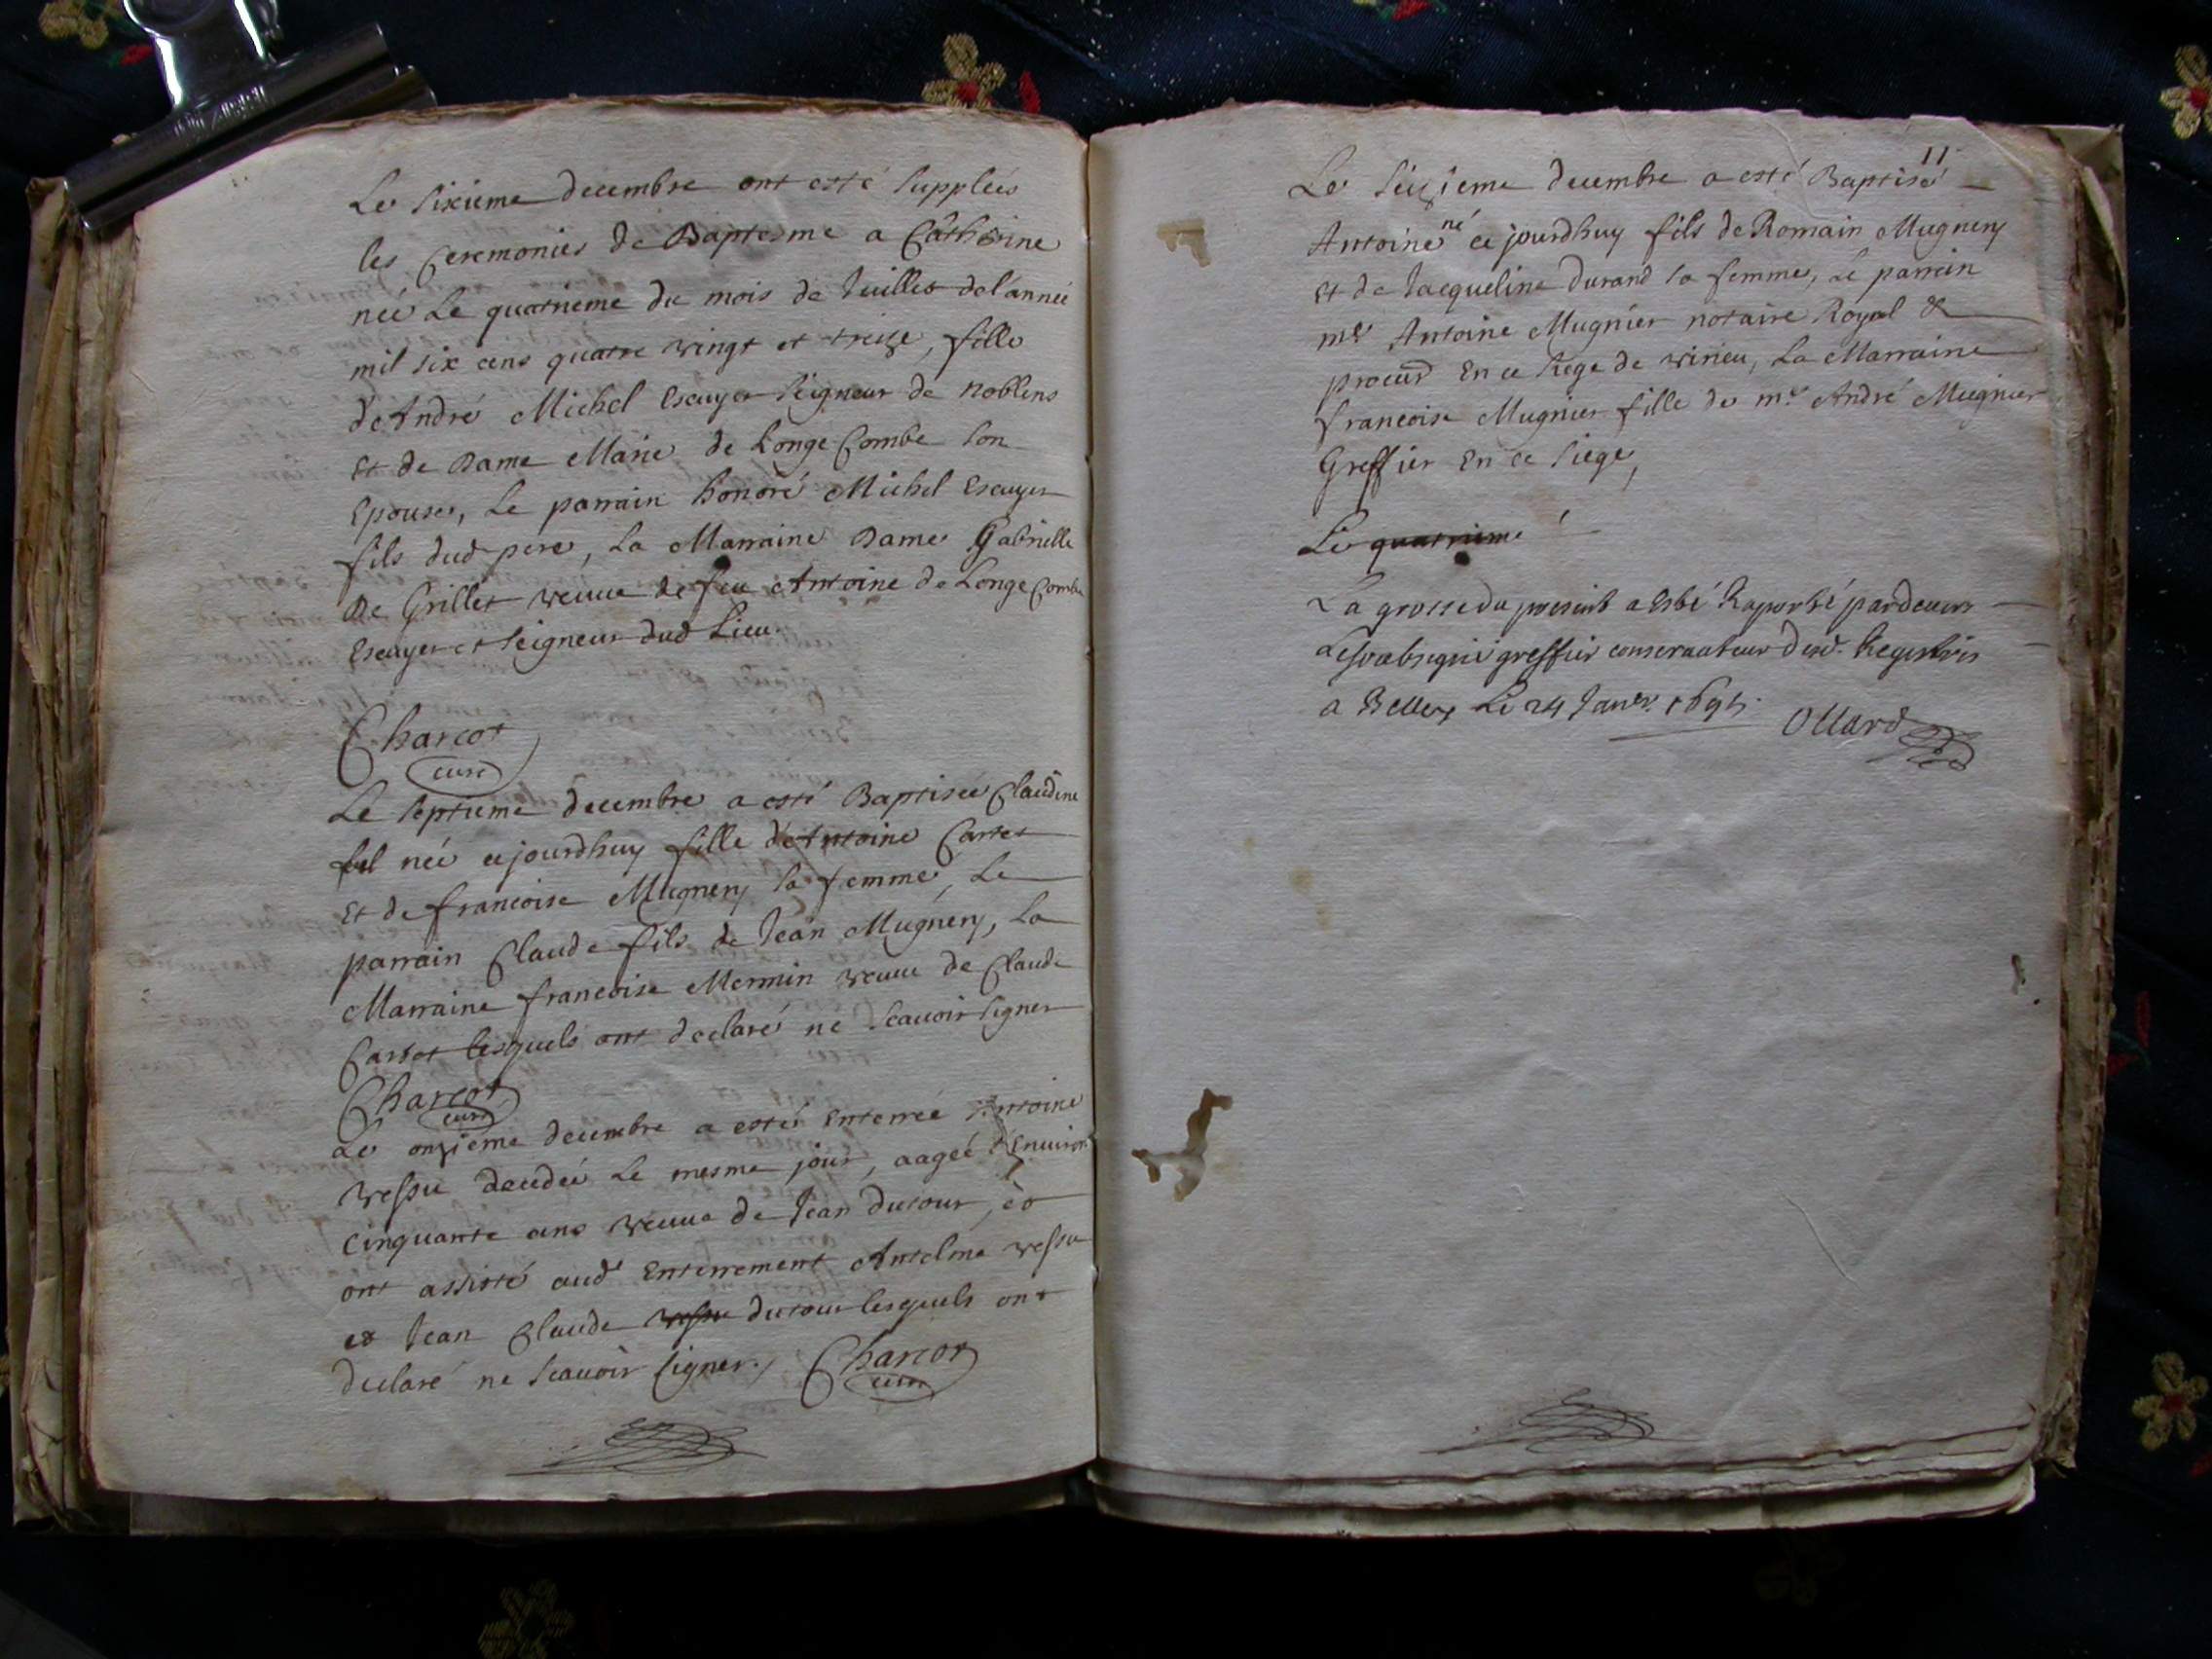 Le sixieme decembre ont esté suppleés
les Ceremonies de Baptesme a Catherine
née Le quatrieme du mois de Juillet de l'année
mil six cens quatre vingt et treize, fille
de André Michel Escuyer Seigneur de Noblens
Et de Dame Marie de Longe Combe son
Epouse, Le parrain honoré Michel Escuyer
fils dud pere, La Marraine Dame Gabrielle
De Grillet veuve de feu Antoine de Longe Combe
Escuyer et Seigneur dud Lieu.
Charcot
curé
Le septieme decembre a esté Baptisée Claudine
née cejourdhuy fille d'Antoine Carret
Et de francoise Mugnery sa femme, Le
parrain Claude fils de Jean Mugnery, La
Marraine francoise Mermin veuve de Claude
Carret lesquels ont declaré ne scavoir signer
Charcot
curé
Le onzieme decembre a esté Enterrée Antoine
Vessu decedée Le mesme jour, aageé d'Environ
cinquante ans veuve de Jean dutour, et
ont assisté aud Enterrement Antelme vessu
et Jean Claude vessu dutour lesquels ont
declaré ne scavoir signer. Charcot
curé
11
Le seizieme decembre a esté Baptisé
Antoine né ce jourdhuy fils de Romain Mugnery
Et de Jacqueline durand sa femme, Le parrain
me Antoine Mugnier notaire Royal &
procur En ce siege de virieu, La Marraine
francoise Mugnier fille de me André Mugnier
Greffier En ce siege,
Le quatrieme
La grosse du present a Esté Raporté pardevers
Le soubsigné greffier conservateur desd. Registres
a Belley Le 24 Janer. 1695.
Ollard